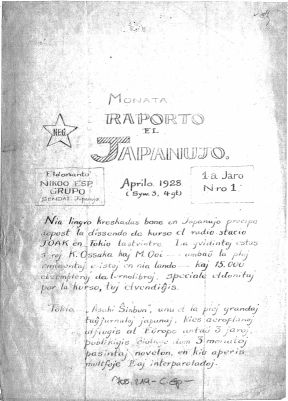 MONATA
RAPORTO
EL
JAPANUJO.
NEG
Eldonanto
NIKOO ESP.
GRUPO
SENDAI Japanujo
Aprilo. 1928
1a Jaro
Nro 1
Nia lingvo kreskadas bone en Japanujo precipe
post la dissendo de kurso el radio stacio
JOAK en Tokio lastvintre. La gvidintoj estas
s-roj K. Ossaka kaj M. Ooi unuaj la plej
eminentaj e-istoj en nia lando kaj 15.000
ekzempleroj da lernolibroj, speciale eldonitaj
por la kurso, tuj elvendiĝis.
Tokio Asahi Ŝinbun, unu el la plej grandaj
tagĵurnaloj japanaj, kies aeroplanoj
alflugis al Europo antaŭ 3 jaroj,
publikigis dum 3 monatoj
pasintaj novelon, en kiu aperis
multfoje E-aj interparoladoj.